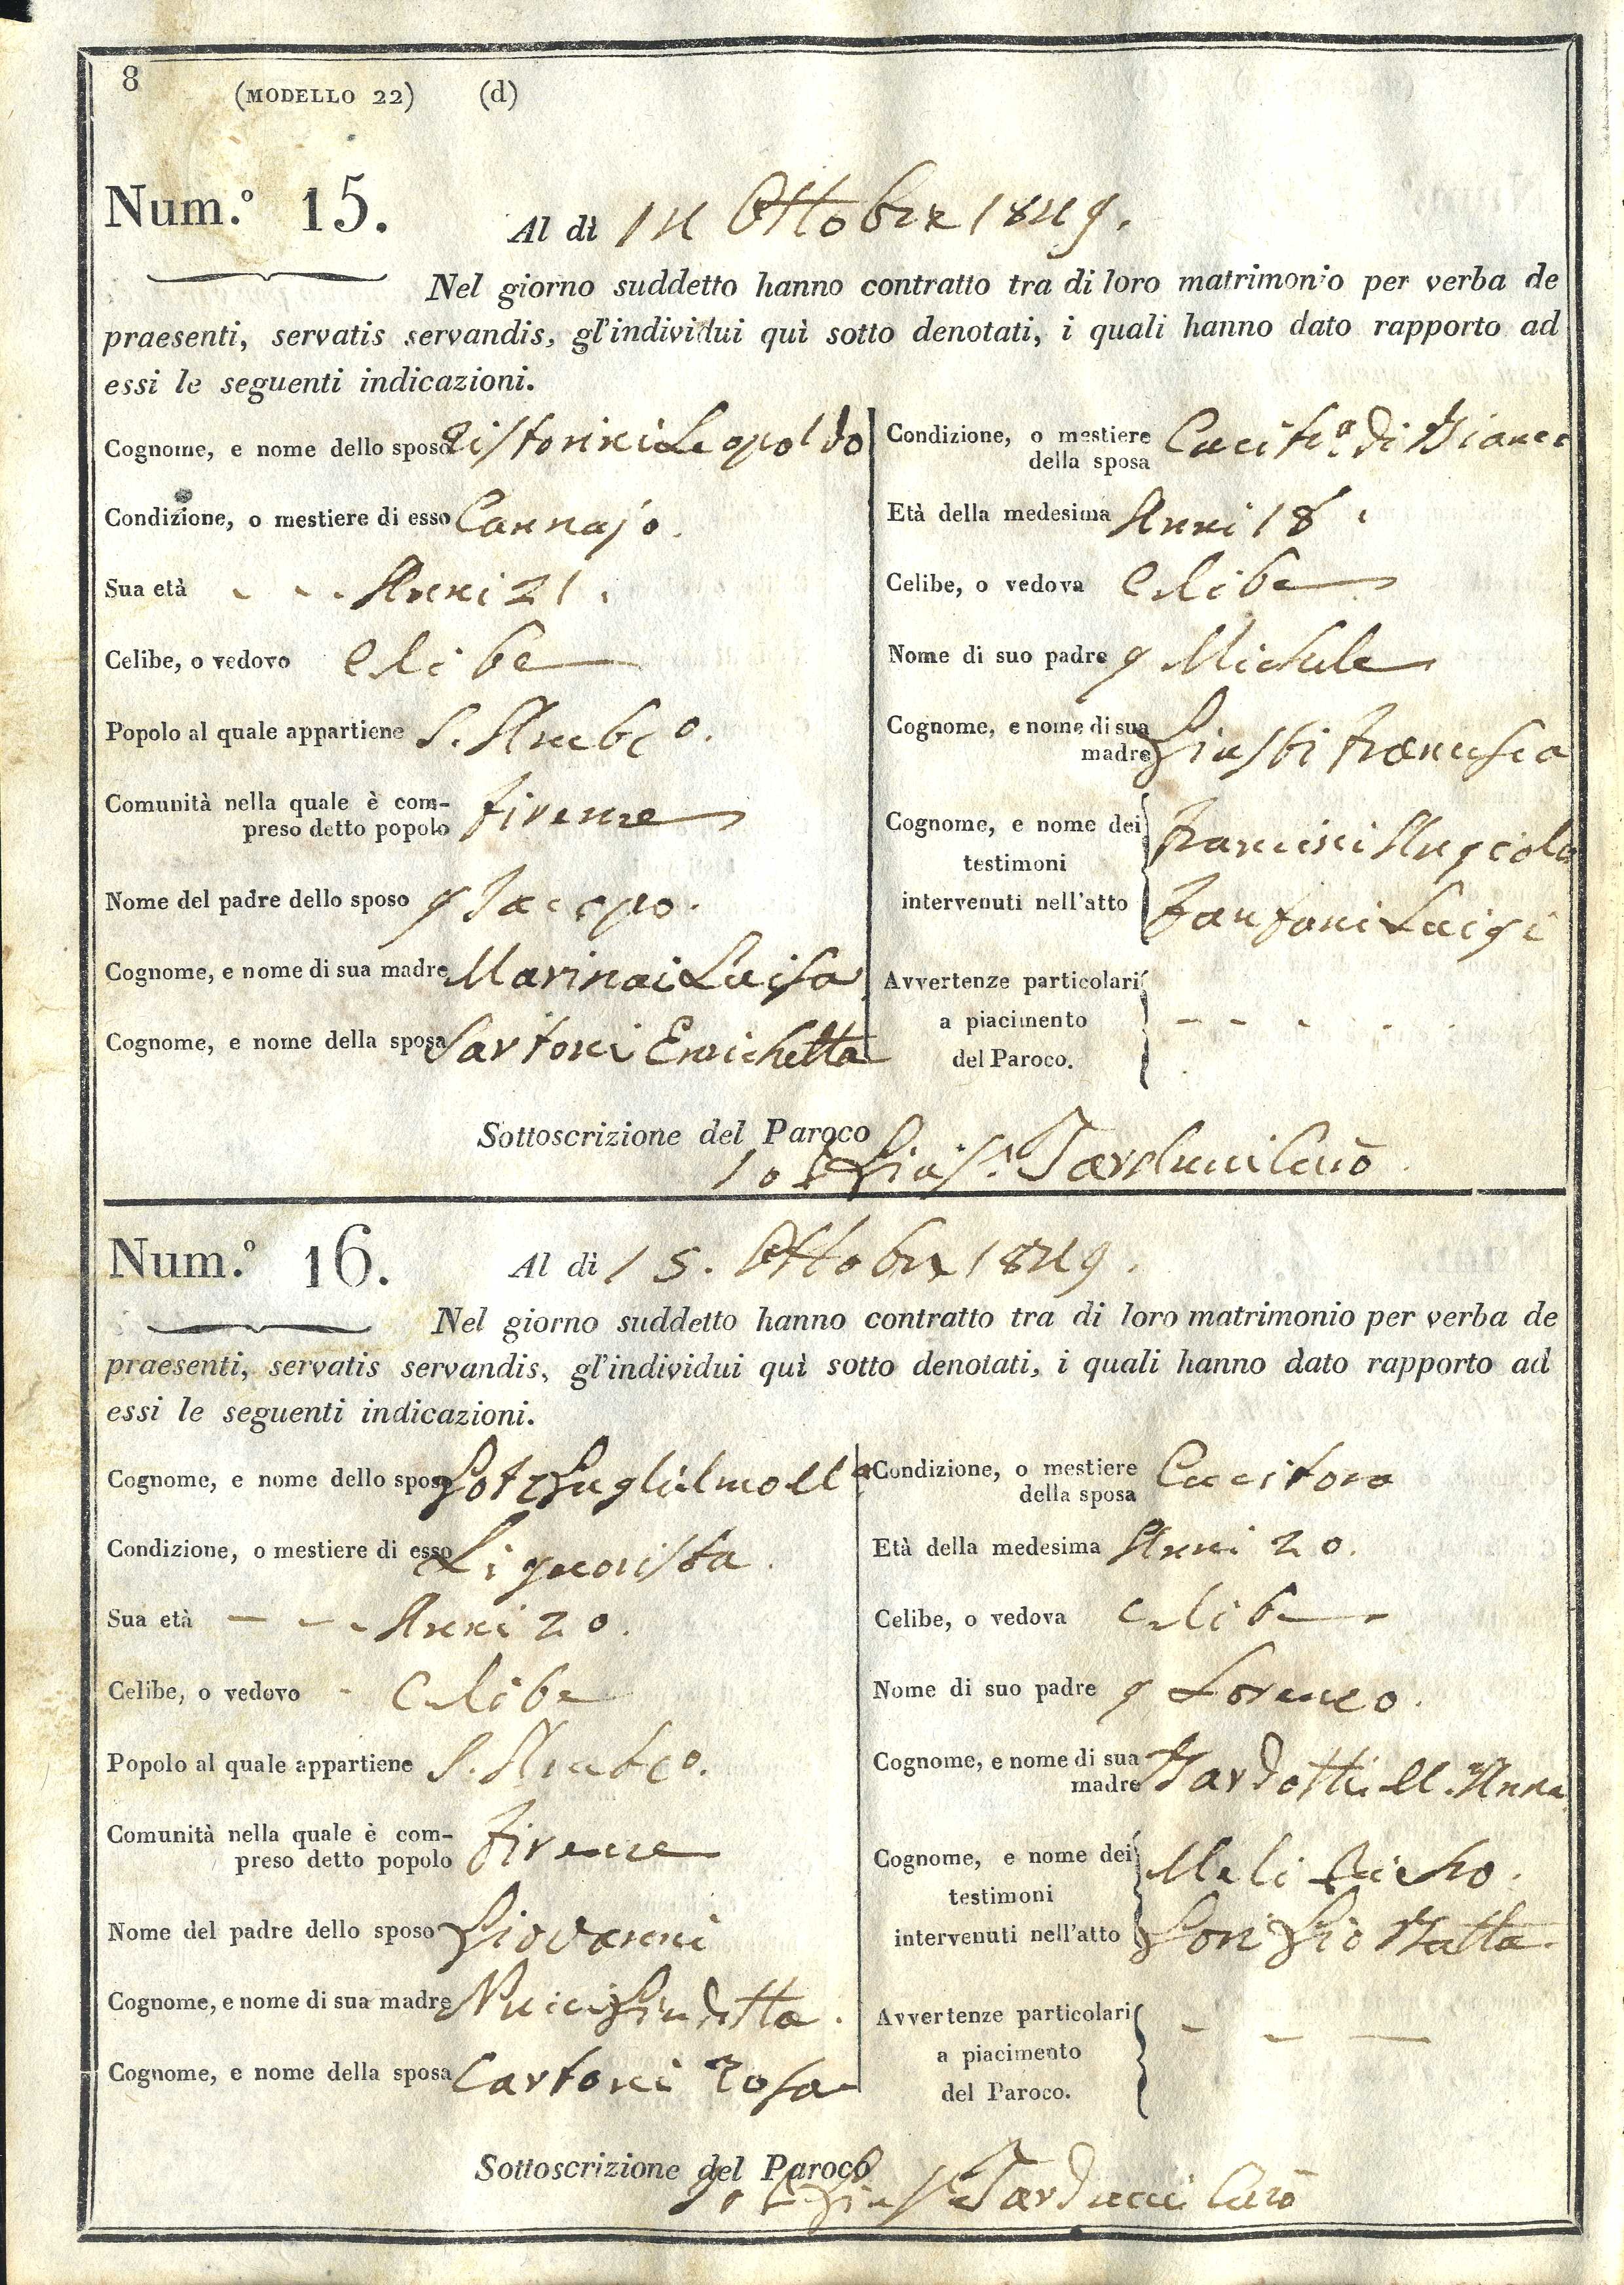 8
(MODELLO 22) (d)
Num.º 15.
Al dì 14 Ottobre 1849.
Nel giorno suddetto hanno contratto tra di loro matrimonio per verba de
praesenti, servatis servandis, gl'individui quì sotto denotati, i quali hanno dato rapporto ad
essi le seguenti indicazioni.
Cognome, e nome dello sposo Leopoldo
Condizione, o mestiere di esso
Sua età - - - Anni 21.
Celibe, o vedovo Celibe
Popolo al quale appartiene S. Amb.º
Comunità nella quale è com-
preso detto popolo Firenze
Nome del padre dello sposo q Jacopo.
Cognome, e nome di sua madre Marinai Luisa
Cognome, e nome della sposa Sartoni Enrichetta
Condizione, o mestiere
della sposa Cucit.ª di Bianco
Età della medesima Anni 18.
Celibe, o vedova Celibe
Nome di suo padre q Michele
Cognome, e nome di sua
madre Giusti Francesca
Cognome, e nome dei
testimoni
intervenuti nell'atto
Francini Angiolo
Fanfani Luigi
Avvertenze particolari
a piacimento
del Paroco.
- - - - -
Sottoscrizione del Paroco
Io P. Gius.e Tarducci Curº
Num.º 16.
Al dì 15. Ottobre 1849.
Nel giorno suddetto hanno contratto tra di loro matrimonio per verba de
praesenti, servatis servandis, gl'individui quì sotto denotati, i quali hanno dato rapporto ad
essi le seguenti indicazioni.
Cognome, e nome dello sposo Guglielmo
Condizione, o mestiere di esso Liquorista.
Sua età - - - Anni 20.
Celibe, o vedovo - Celibe
Popolo al quale appartiene S. Amb.º
Comunità nella quale è com-
preso detto popolo Firenze
Nome del padre dello sposo Giovanni
Cognome, e nome di sua madre Nucci Giuditta.
Cognome, e nome della sposa Cartoni Rosa
Condizione, o mestiere
della sposa Cucitora
Età della medesima Anni 20.
Celibe, o vedova Celibe
Nome di suo padre q Lorenzo.
Cognome, e nome di sua
madre Bardotti M. Anna
Cognome, e nome dei
testimoni
intervenuti nell'atto
Meli
Gori Gio Batta
Avvertenze particolari
a piacimento
del Paroco.
- - -
Sottoscrizione del Paroco
Io P. Gius.e Tarducci Curº